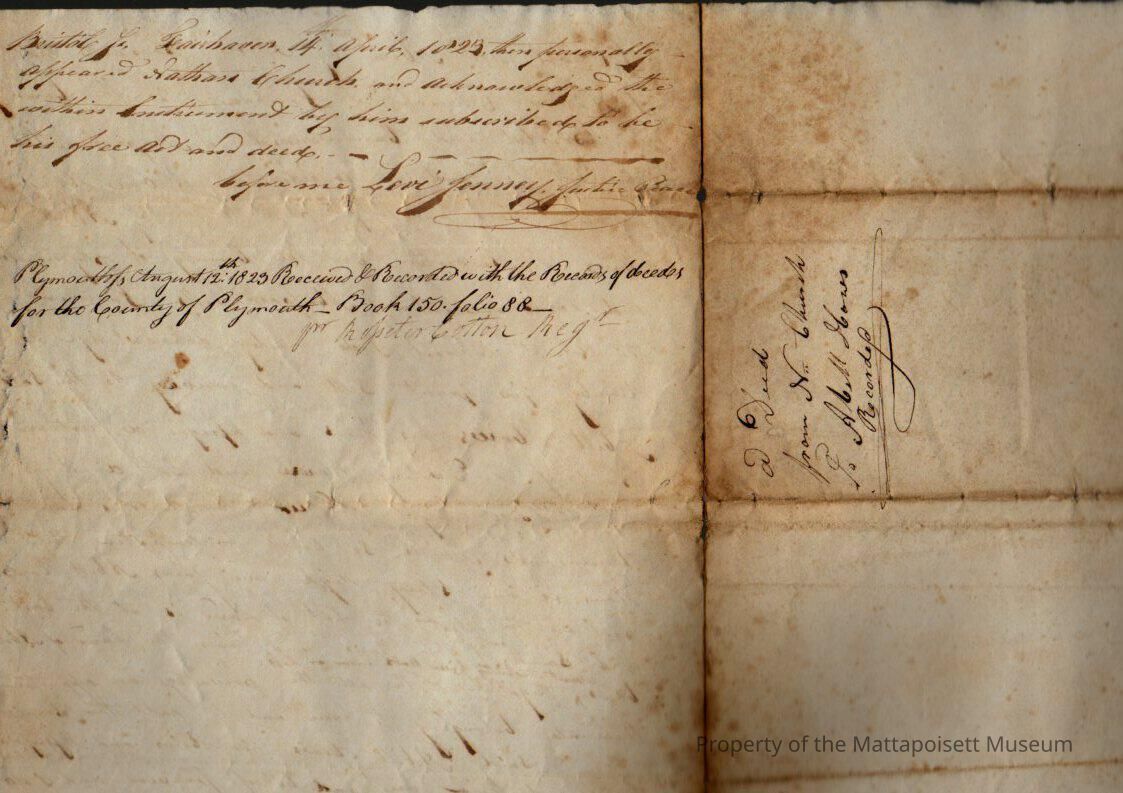 Bristol, ss. Fairhaven, 14. April, 1823, then personally
appeared Nathan Church, and acknowledged the
within Instrument by him subscribed, to be
his free act and deed. -
before me Levi Jenney, Justice Peace
Plymouth, ss, August 12.th 1823 Received & Recorded with the Records of deeds
for the County of Plymouth - Book 150. folio 88 -
pr Rossiter Cotton Regr
a Deed
from Nn Church
To Abell Hows
Recorded
Property of the Mattapoisett Museum